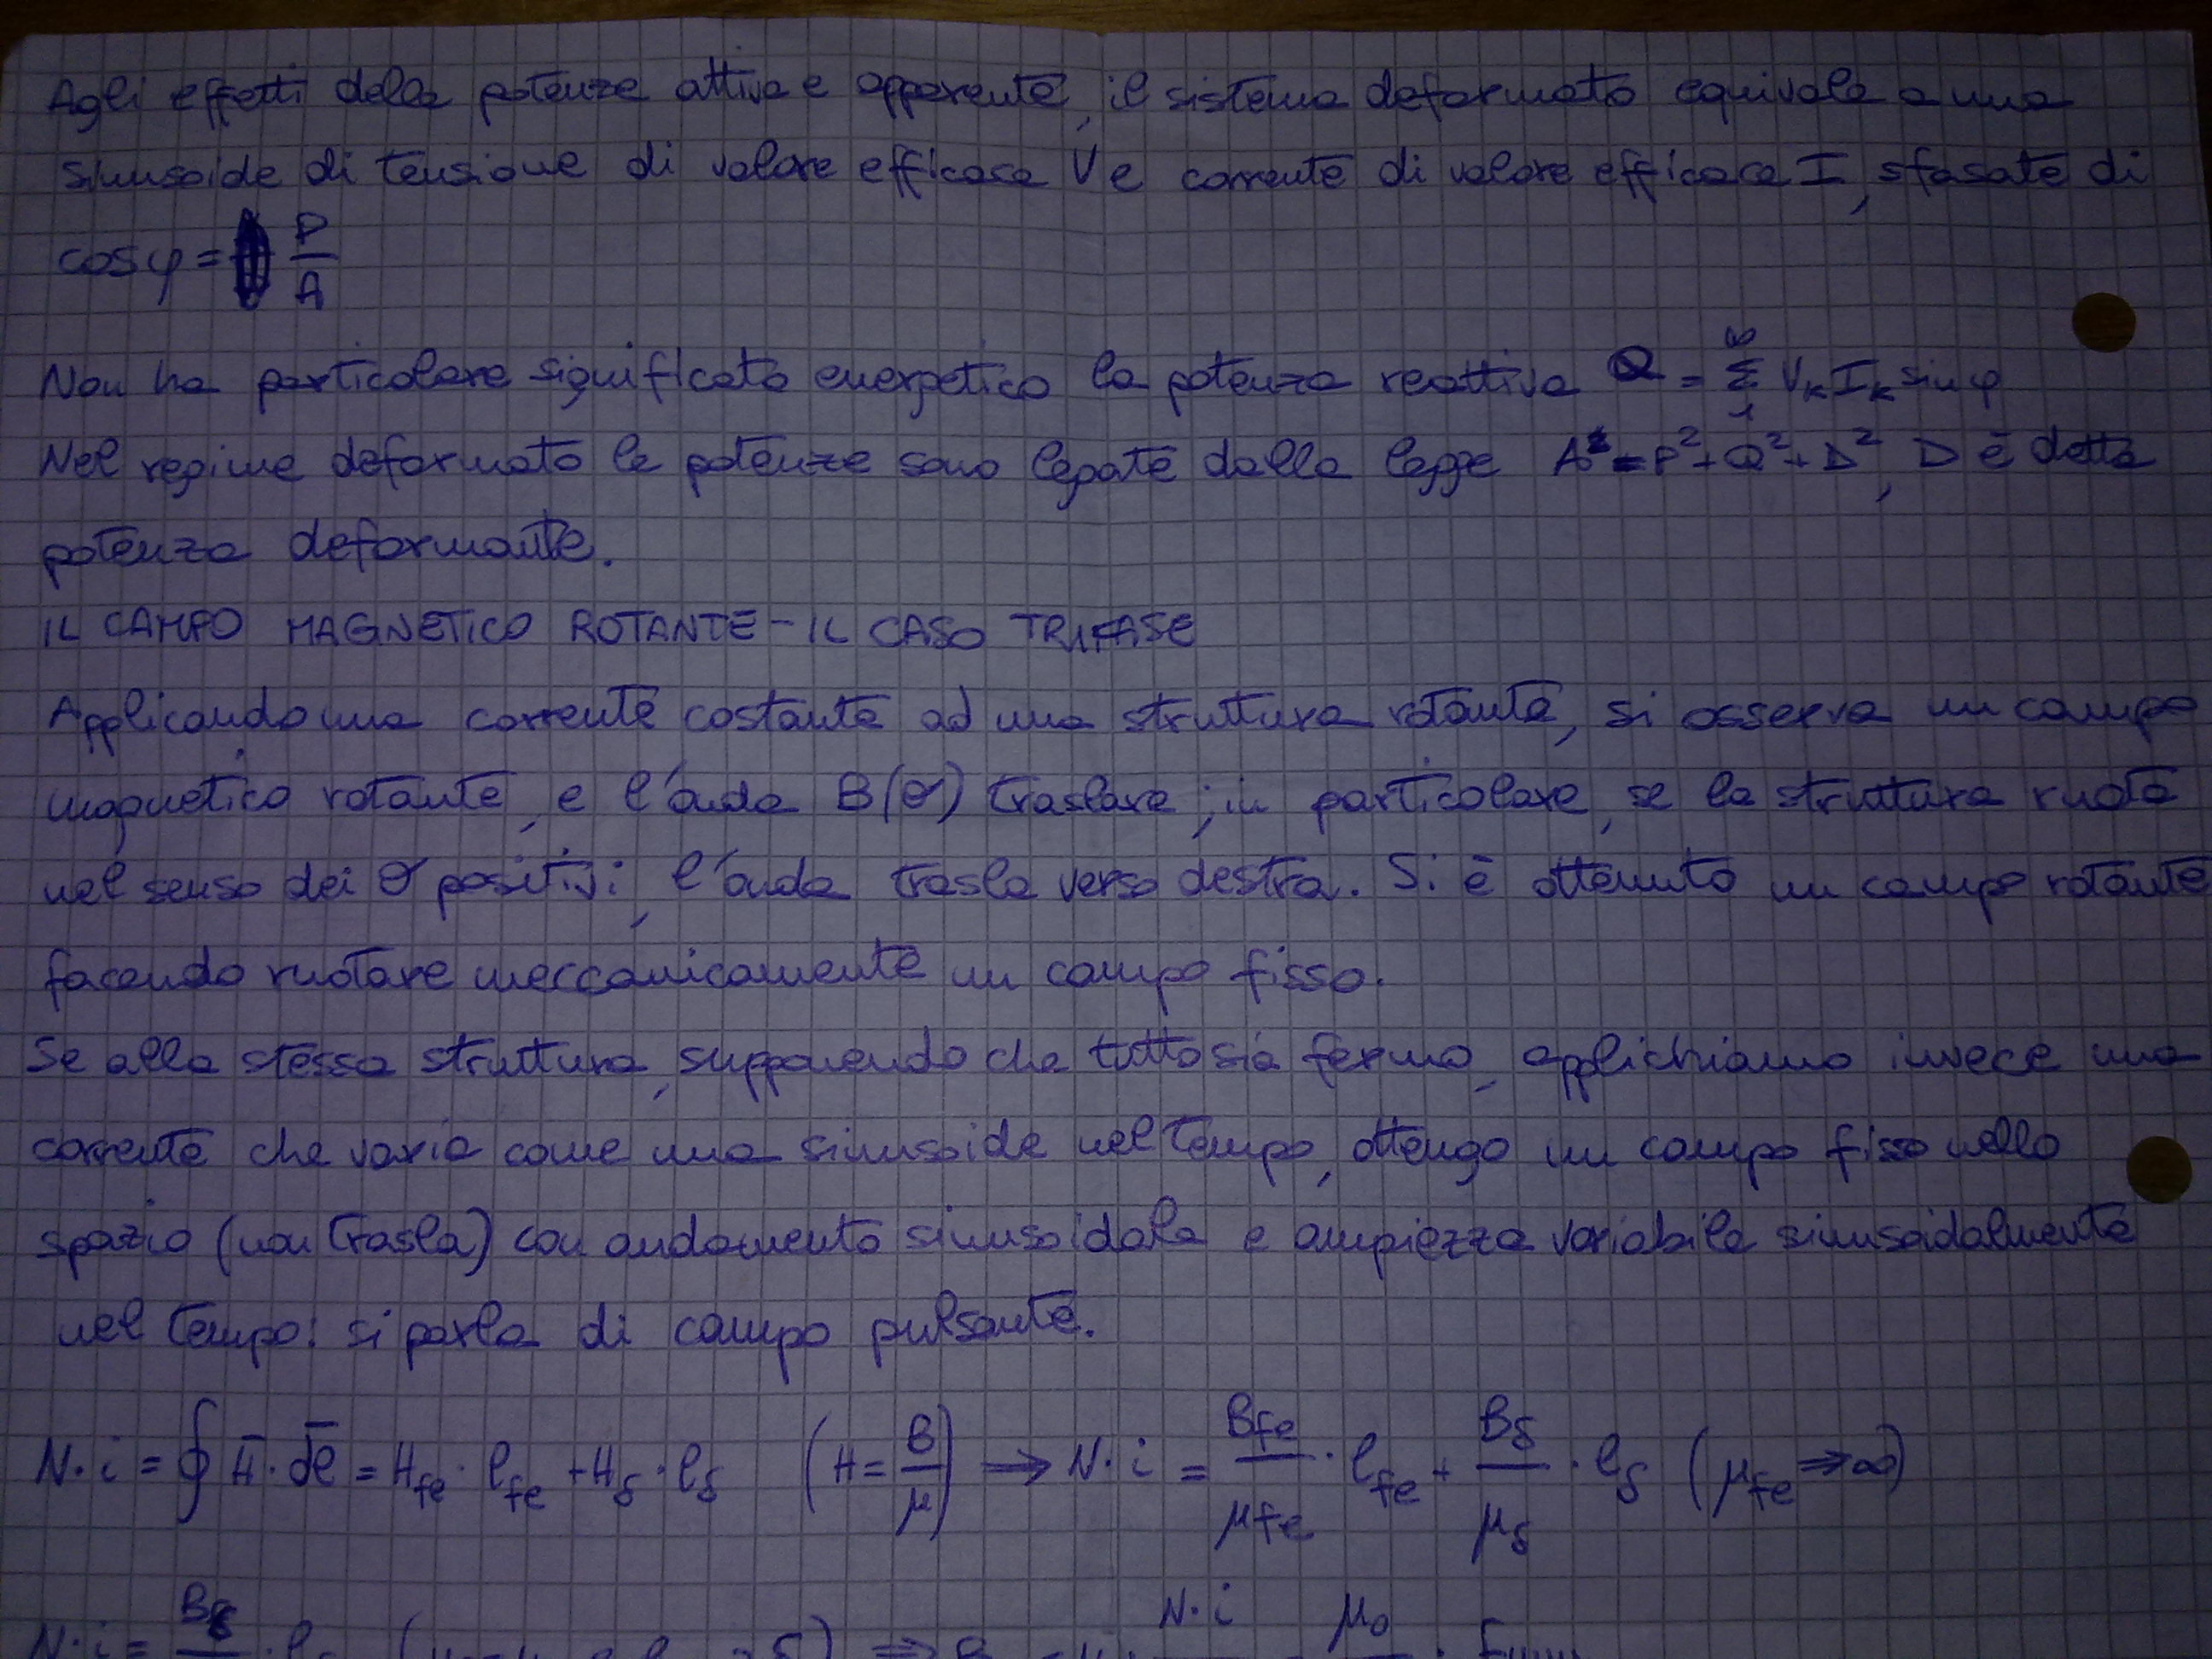 Agli effetti delle potenze attiva e apparente, il sistema deformato equivale a una
sinusoide di tensione di valore efficace V e corrente di valore efficace I, sfasate di
cosφ = P/A
Non ha particolare significato energetico la potenza reattiva Q = ∞Σ1 VkIk sinφ
Nel regime deformato le potenze sono legate dalla legge A² = P² + Q² + D², D è detta
potenza deformante.
IL CAMPO MAGNETICO ROTANTE - IL CASO TRIFASE
Applicando una corrente costante ad una struttura rotante, si osserva un campo
magnetico rotante, e l'onda B(θ) traslare; in particolare, se la struttura ruota
nel senso dei θ positivi, l'onda trasla verso destra. Si è ottenuto un campo rotante
facendo ruotare meccanicamente un campo fisso.
Se alla stessa struttura, supponendo che tutto sia fermo, applichiamo invece una
corrente che varia come una sinusoide nel tempo, ottengo un campo fisso nello
spazio (non trasla) con andamento sinusoidale e ampiezza variabile sinusoidalmente
nel tempo: si parla di campo pulsante.
N·i = ∮ H̄·dl̄ = Hfe · lfe + Hδ · lδ (H = B/μ) ⇒ N·i = Bfe/μfe · lfe + Bδ/μδ · lδ (μfe ⇒ ∞)
N·i = Bδ N·i μ0